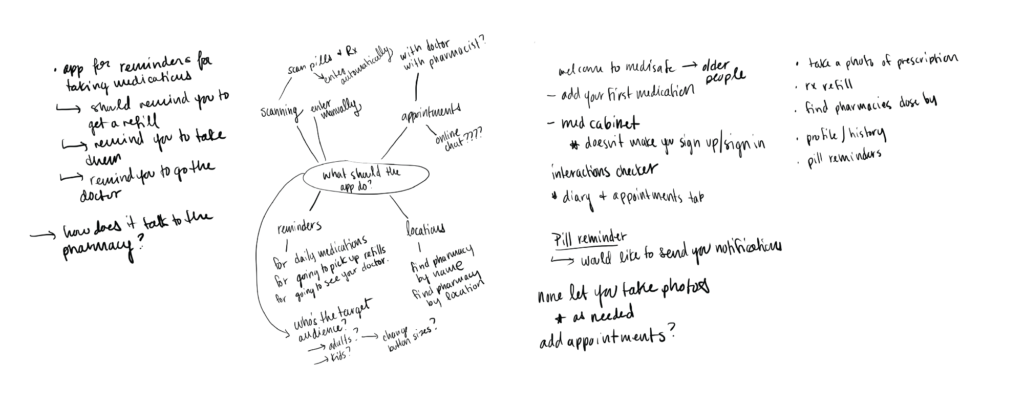 • app for reminders for
taking medications
↳ should remind you to
get a refill
↳ remind you to take
them
↳ remind you to go the
doctor
→ how does it talk to the
pharmacy?
scan pills + Rx
↘ enter
automatically
with doctor
with pharmacist?
scanning
enter
manually
appointments
online
chat????
what should the
app do?
reminders
for daily medications
for going to pick up refills
for going to see your doctor.
locations
find pharmacy
by name
find pharmacy
by location
who's the target
audience?
→ adults? → change
button sizes?
→ kids?
welcome to medisafe → older
people
- add your first medication
- med cabinet
* doesn't make you sign up/sign in
interactions checker
* diary + appointments tab
Pill reminder
↳ would like to send you notifications
none let you take photos
* as needed
add appointments?
• take a photo of prescription
• rx refill
• find pharmacies close by
• profile/history
• pill reminders